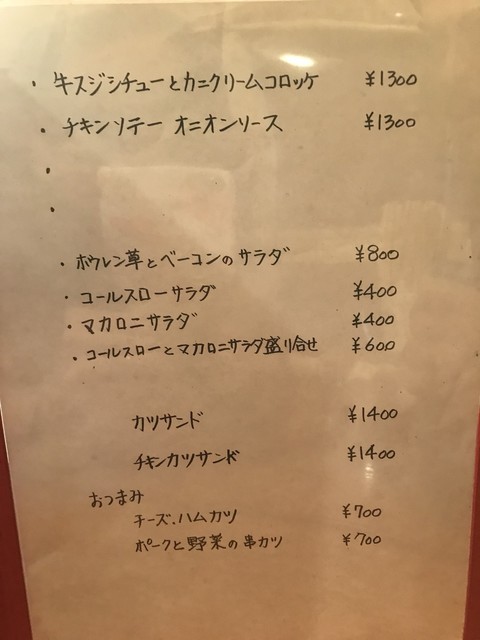 ・牛スジシチューとカニクリームコロッケ ¥1300
・チキンソテー オニオンソース ¥1300
・
・
・ホウレン草とベーコンのサラダ ¥800
・コールスローサラダ ¥400
・マカロニサラダ ¥400
・コールスローとマカロニサラダ盛り合せ ¥600
カツサンド ¥1400
チキンカツサンド ¥1400
おつまみ
チーズ、ハムカツ ¥700
ポークと野菜の串カツ ¥700